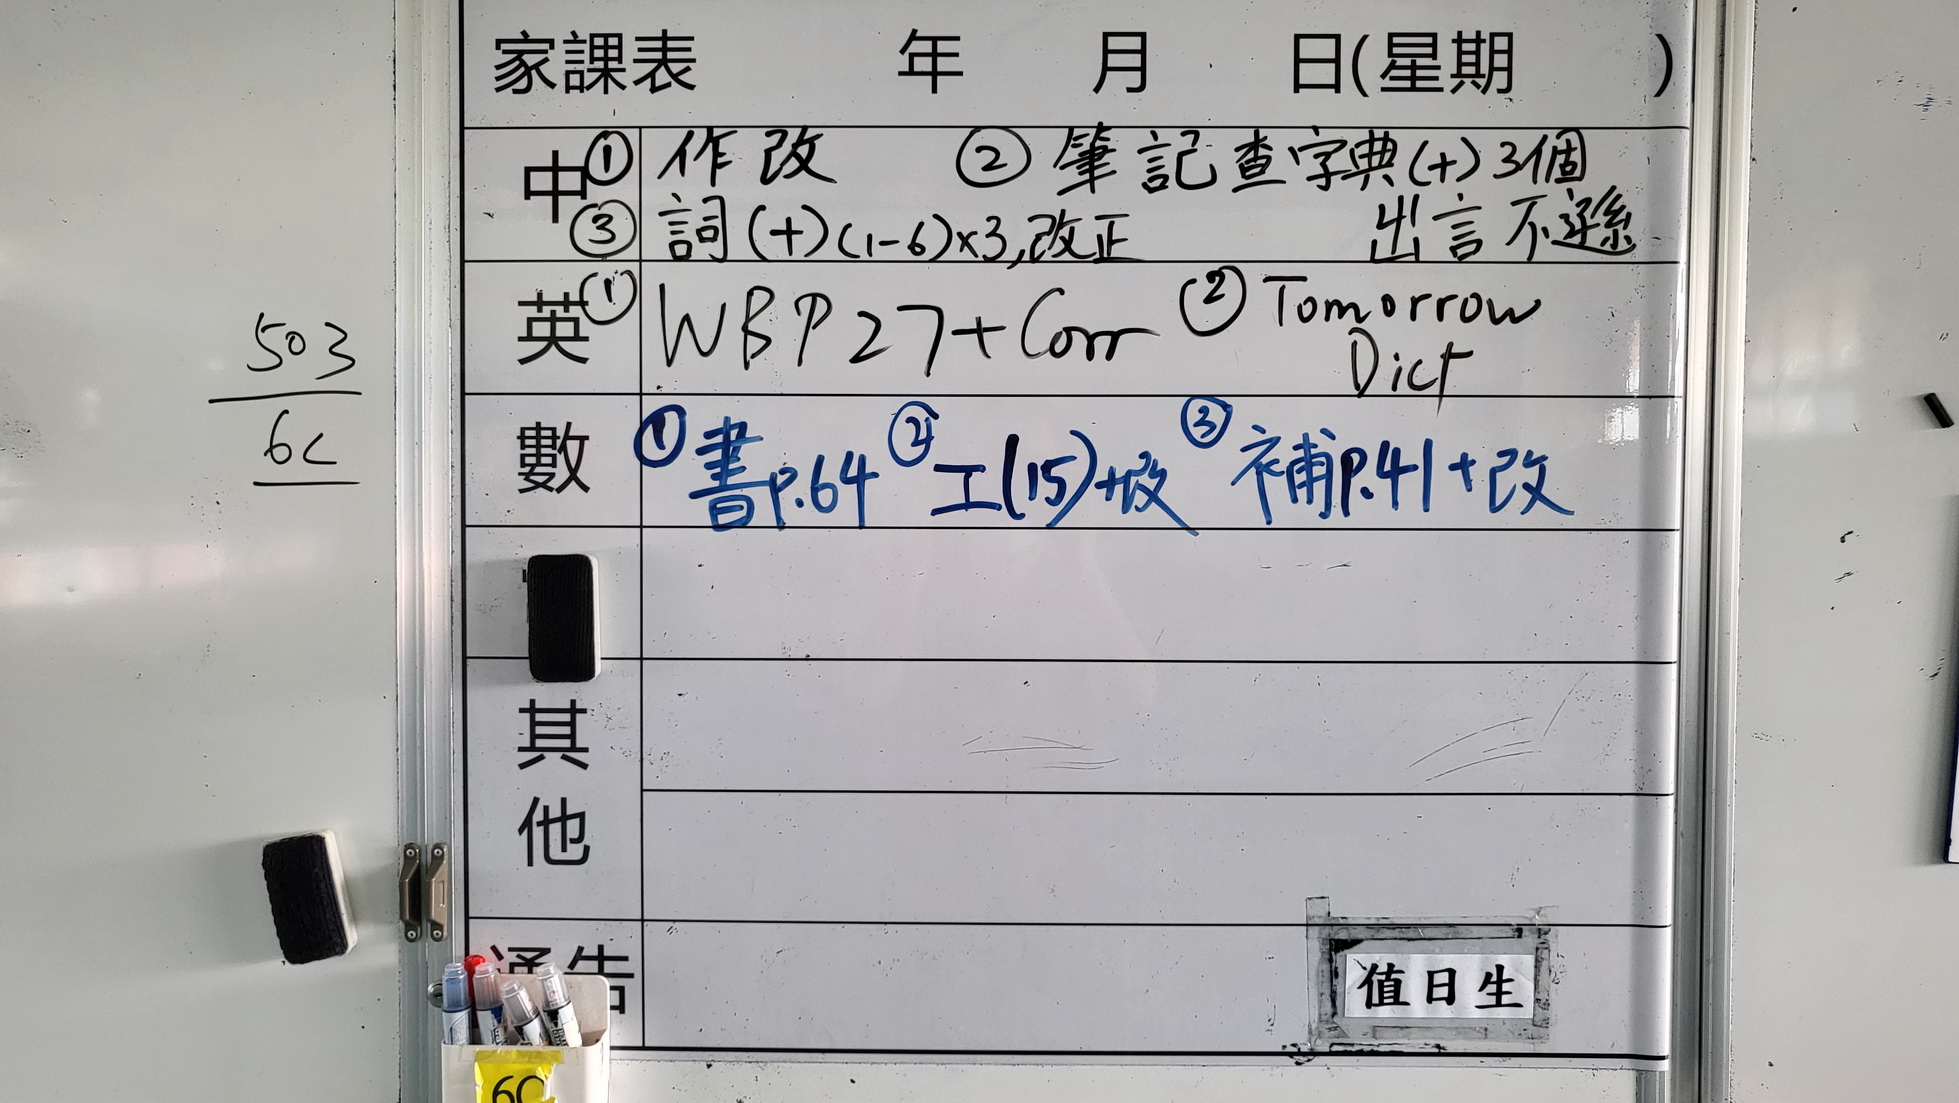 家課表 年 月 日(星期 )
中 ① 作改 ② 筆記查字典(+)3個
③ 詞(+)(1-6)x3,改正 出言不遜
英 ① WBP27+Corr ② Tomorrow
Dict
數 ① 書p.64 ② 工(15)+改 ③ 補p.41+改
503
6C
其
他
通告
值日生
6C